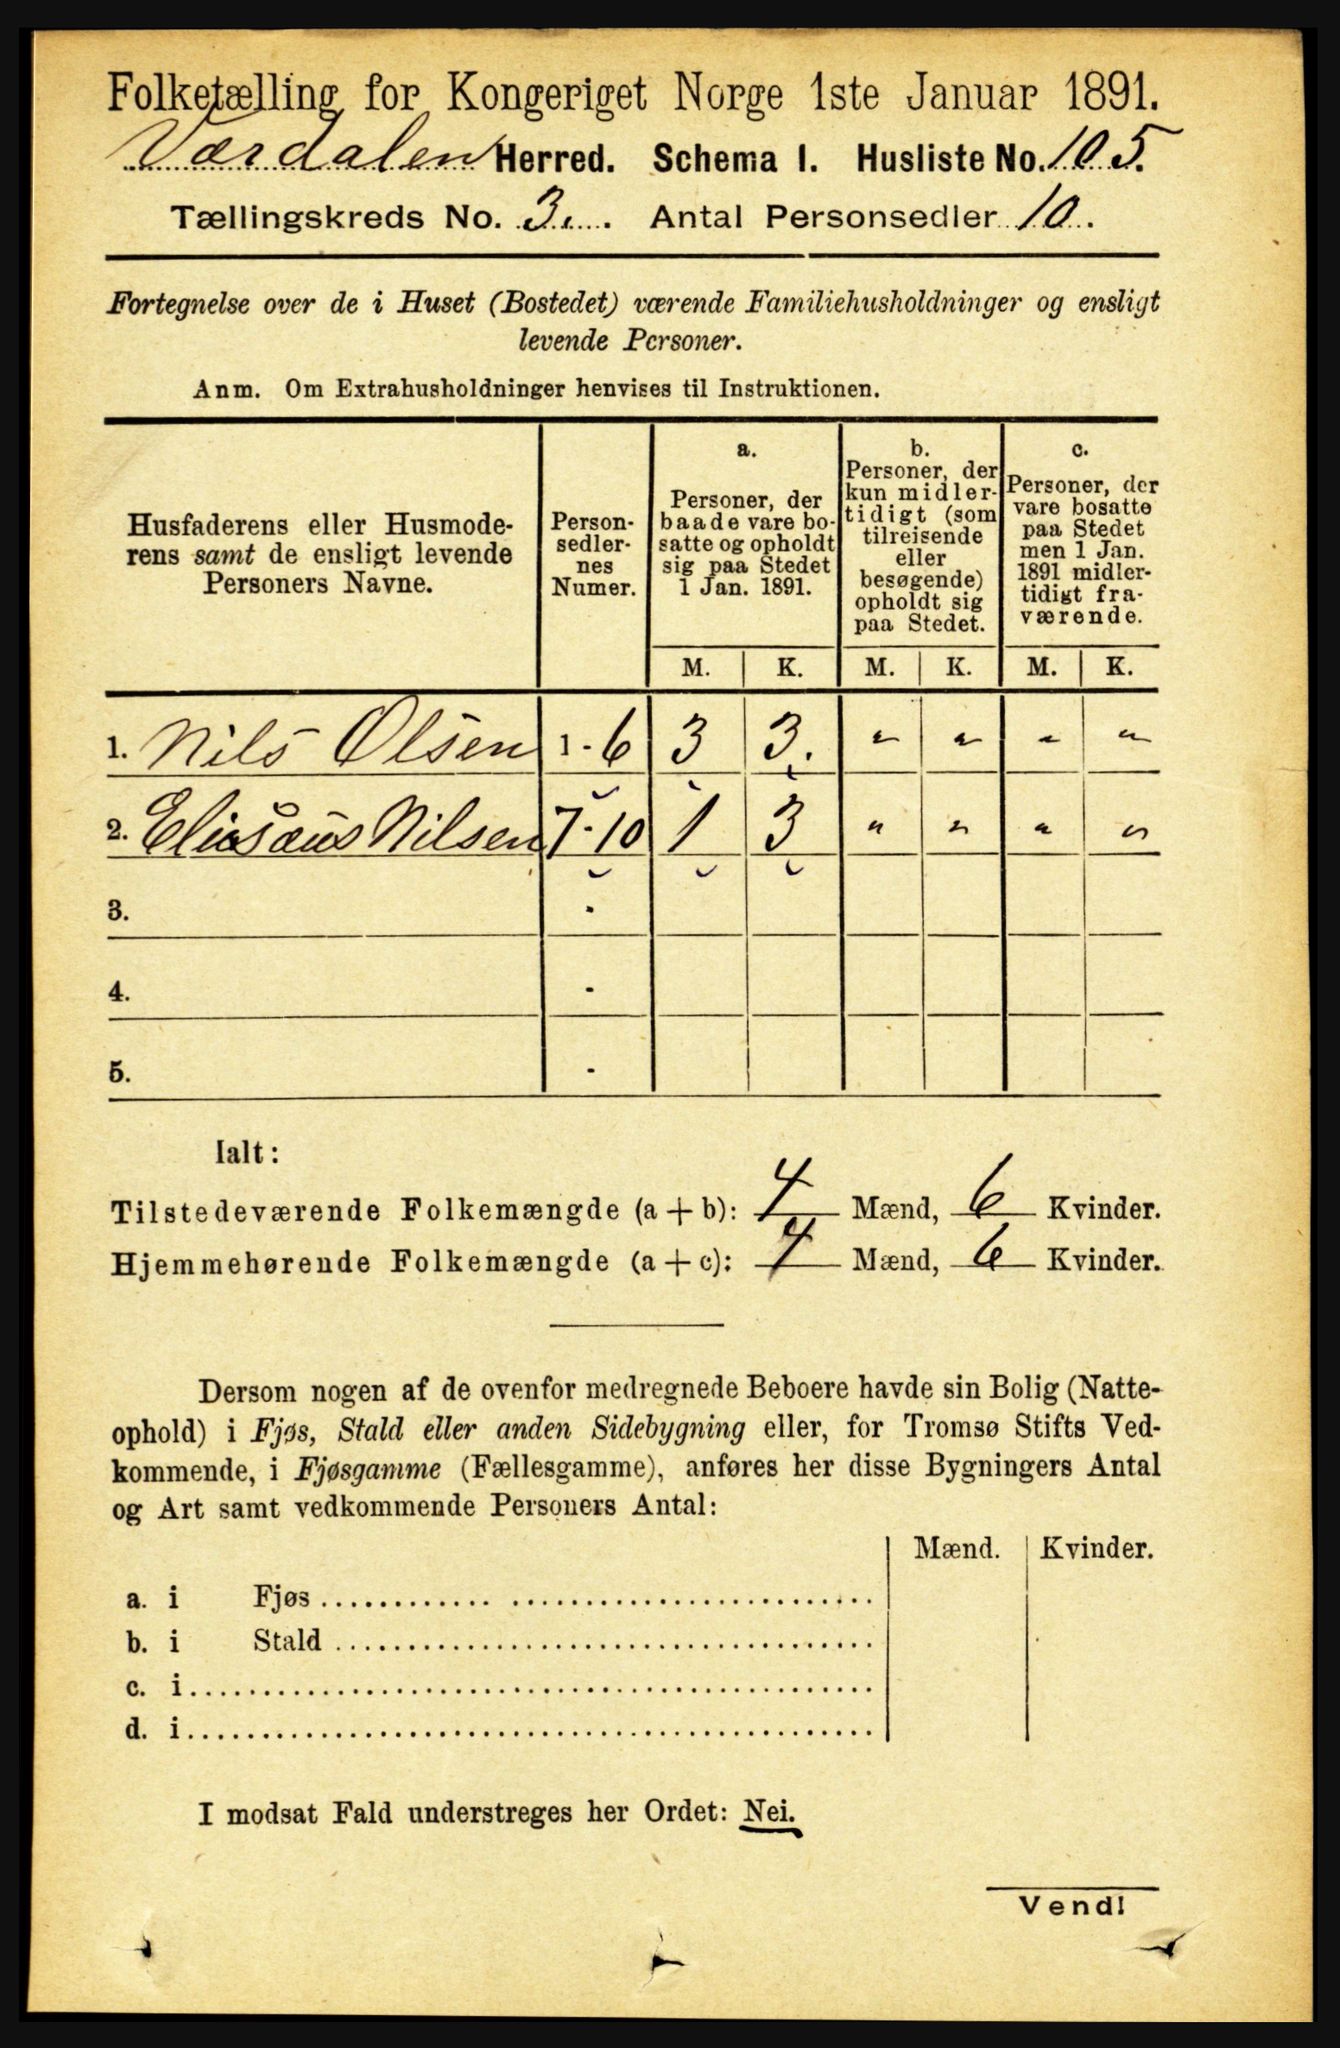 Folketælling for Kongeriget Norge 1ste Januar 1891.
Værdalen Herred. Schema I. Husliste No. 105.
Tællingskreds No. 3. Antal Personsedler 10.
Fortegnelse over de i Huset (Bostedet) værende Familiehusholdninger og ensligt
levende Personer.
Anm. Om Extrahusholdninger henvises til Instruktionen.
Husfaderens eller Husmode-
rens samt de ensligt levende
Personers Navne.
Person-
sedler-
nes
Numer.
a.
Personer, der
baade vare bo-
satte og opholdt
sig paa Stedet
1 Jan. 1891.
b.
Personer, der
kun midler-
tidigt (som
tilreisende
eller
besøgende)
opholdt sig
paa Stedet.
c.
Personer, der
vare bosatte
paa Stedet
men 1 Jan.
1891 midler-
tidigt fra-
værende.
M. K. M. K. M. K.
1. Nils Olsen 1 - 6 3 3. " " " "
2. Elisæus Nilsen 7 - 10 1 3 " " " "
3. -
4. -
5. -
Ialt:
Tilstedeværende Folkemængde (a + b): 4 Mænd, 6 Kvinder.
Hjemmehørende Folkemængde (a + c): 4 Mænd, 6 Kvinder.
Dersom nogen af de ovenfor medregnede Beboere havde sin Bolig (Natte-
ophold) i Fjøs, Stald eller anden Sidebygning eller, for Tromsø Stifts Ved-
kommende, i Fjøsgamme (Fællesgamme), anføres her disse Bygningers Antal
og Art samt vedkommende Personers Antal:
Mænd. Kvinder.
a. i Fjøs
b. i Stald
c. i
d. i
I modsat Fald understreges her Ordet: Nei.
Vend!